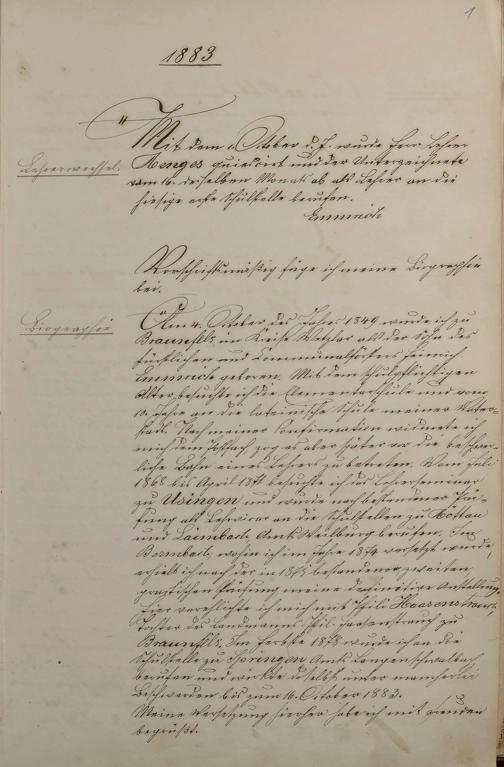 1
1883
Mit dem 1. October d. J. wurde Herr Lehrer
Lehrerwechsel.
Menges quiescirt und der Unterzeichnete
vom 16. desselben Monats ab als Lehrer an die
hiesige erste Schulstelle berufen.
Emmrich
Vorschriftsmäßig füge ich meine Biographie
bei.
Biographie
Am 4. October des Jahres 1849 wurde ich zu
Braunfels im Kreise Wetzlar als der Sohn des
fürstlichen und Communalförsters Heinrich
Emmrich geboren. Mit dem schulpflichtigen
Alter besuchte ich die Elementarschule und vom
10. Jahre an die lateinische Schule meiner Vater-
stadt. Nach meiner Confirmation widmete ich
mich dem Postfach zog es aber später vor die beschwer-
liche Bahn eines Lehrers zu betreten. Vom Juli
1868 bis April 1871 besuchte ich das Lehrerseminar
zu Usingen und wurde nach bestandener Prü-
fung als Lehrvicar an die Schulstellen zu Möttau
und Laimbach, Amts Weilburg berufen. In
Bermbach, wohin ich im Jahre 1874 versetzt wurde,
erhielt ich nach der in 1875 bestandenen zweiten
praktischen Prüfung meine definitive Anstellung.
Hier verehelichte ich mich mit Phili Haasenstrauch,
Tochter des Landmanns Phil. Haasenstrauch zu
Braunfels. Im Herbste 1878 wurde ich an die
Schulstelle zu Springen Amts Langenschwalbach
berufen und wirkte daselbst unter mancherlei
Beschwerden bis zum 16. October 1883.
Meine Versetzung hierher habe ich mit Freuden
begrüßt.